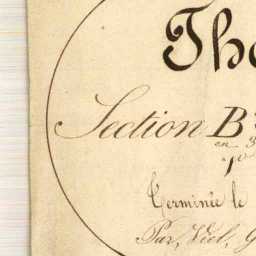 Tho
Section B
en 3
1
Terminée le
Par, Viel, G